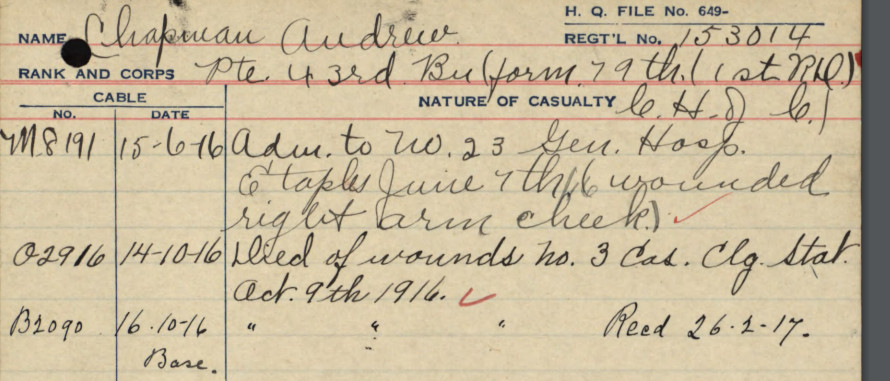 H. Q. FILE No. 649-
NAME Chapman Andrew.
REGT'L No. 153014
RANK AND CORPS Pte. 43rd. Bn (form. 79th. (1st R.D.)
CABLE
NATURE OF CASUALTY C. H. of C.)
NO. DATE
M8191 15-6-16 Adm. to No. 23 Gen. Hosp.
Etaples June 7th/16 wounded
right arm cheek.)
O2916 14-10-16 Died of wounds No. 3 Cas. Clg. Stat.
Oct. 9th 1916.
B2090 16.10-16 " " " Recd 26-2-17.
Base.